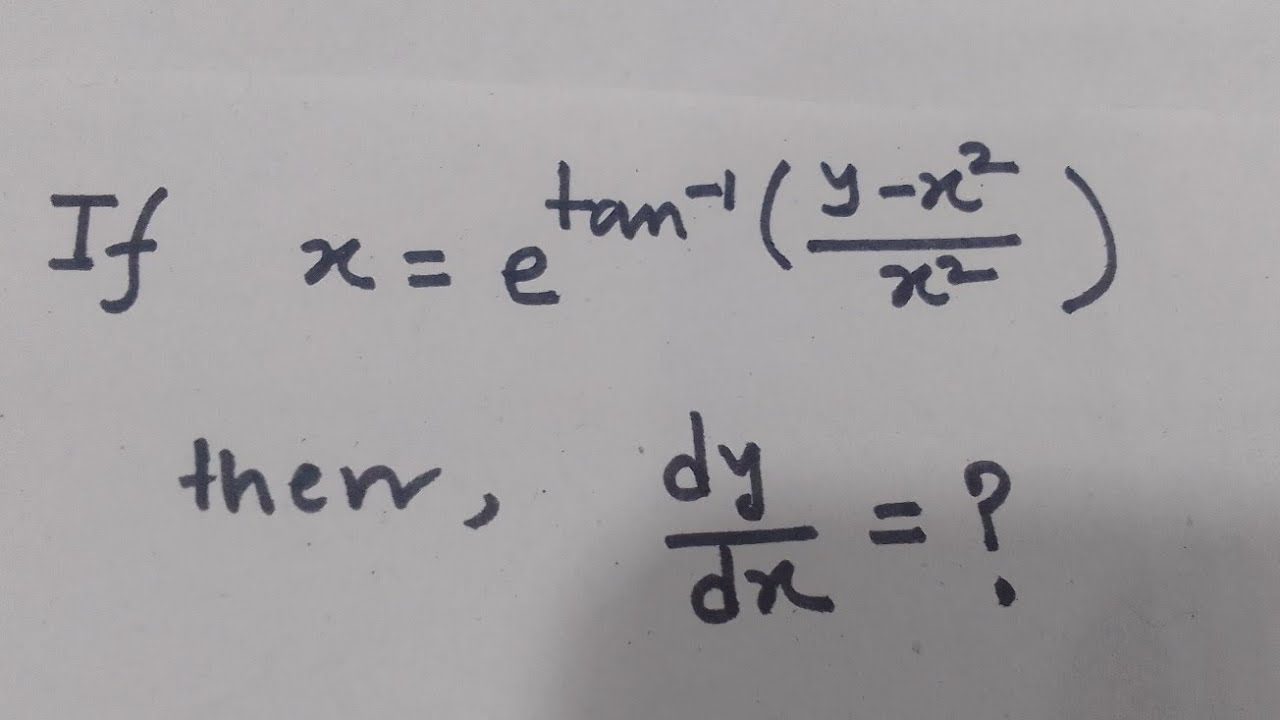 If x = e^tan⁻¹((y-x²)/x²)
then, dy/dx = ?